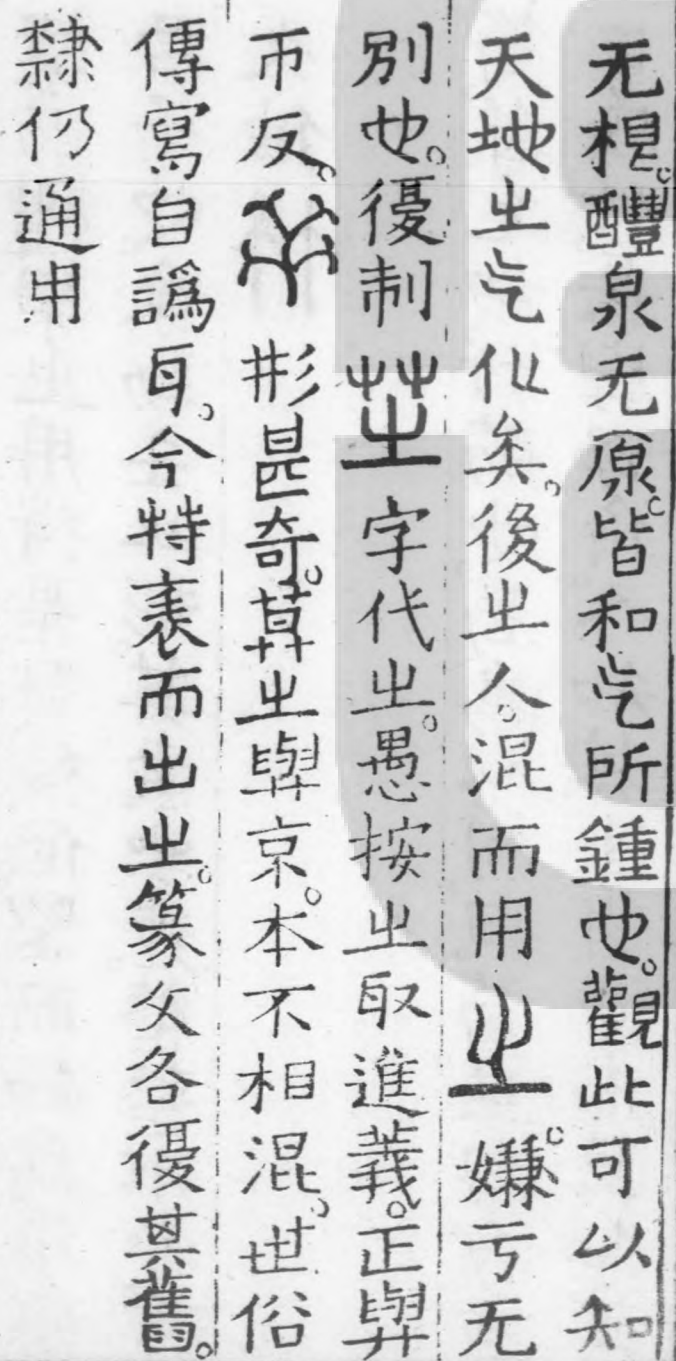 无根。醴泉无原。皆和气所鍾也。觀此可以知
天地㞢气化矣。後㞢人。混而用㞢。嫌亏无
別也。復制芷字代㞢。愚按㞢取進義。正與
帀反。𣥠形甚奇。其㞢與京。本不相混。世俗
傳寫自譌耳。今特表而出㞢。篆文各復其舊。
隸仍通用